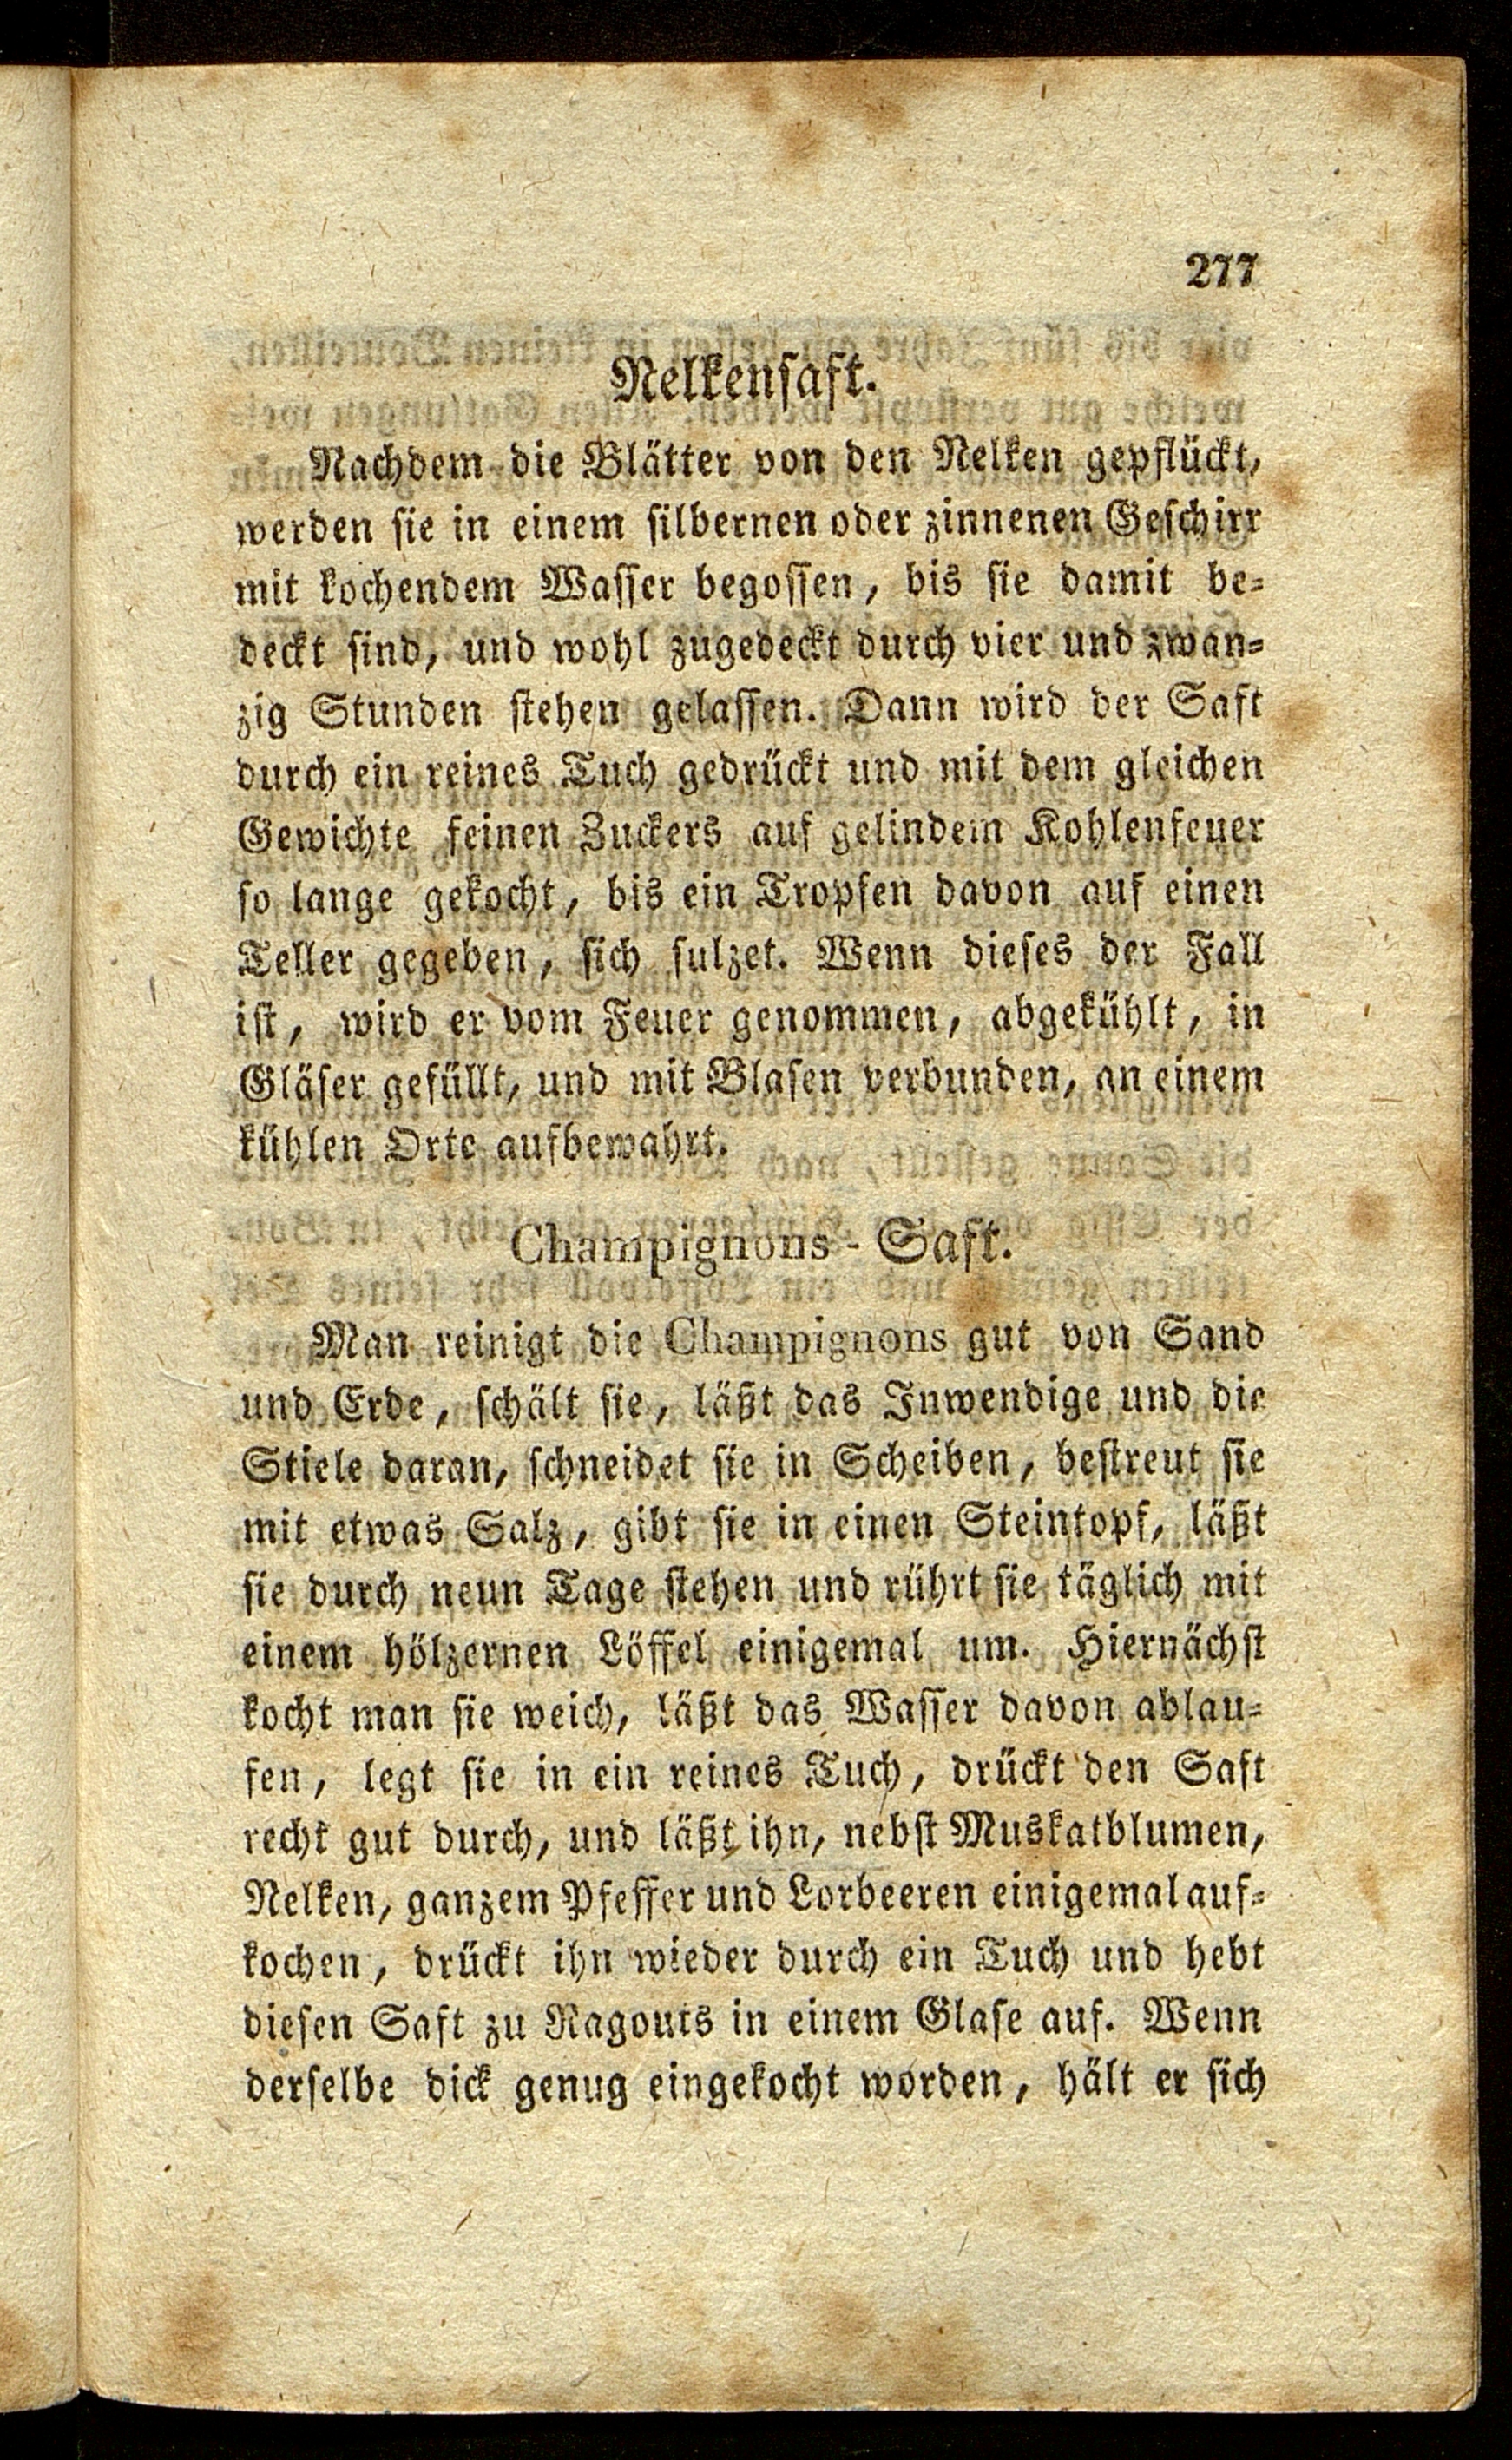 277
Nelkensaft.
Nachdem die Blätter von den Nelken gepflückt,
werden sie in einem silbernen oder zinnenen Geschirr
mit kochendem Wasser begossen, bis sie damit be-
deckt sind, und wohl zugedeckt durch vier und zwan-
zig Stunden stehen gelassen. Dann wird der Saft
durch ein reines Tuch gedrückt und mit dem gleichen
Gewichte feinen Zuckers auf gelindem Kohlenfeuer
so lange gekocht, bis ein Tropfen davon auf einen
Teller gegeben, sich sulzet. Wenn dieses der Fall
ist, wird er vom Feuer genommen, abgekühlt, in
Gläser gefüllt, und mit Blasen verbunden, an einem
kühlen Orte aufbewahrt.
Champignons-Saft.
Man reinigt die Champignons gut von Sand
und Erde, schält sie, läßt das Inwendige und die
Stiele daran, schneidet sie in Scheiben, bestreut sie
mit etwas Salz, gibt sie in einen Steintopf, läßt
sie durch neun Tage stehen und rührt sie täglich mit
einem hölzernen Löffel einigemal um. Hiernächst
kocht man sie weich, läßt das Wasser davon ablau-
fen, legt sie in ein reines Tuch, drückt den Saft
recht gut durch, und läßt ihn, nebst Muskatblumen,
Nelken, ganzem Pfeffer und Lorbeeren einigemal auf-
kochen, drückt ihn wieder durch ein Tuch und hebt
diesen Saft zu Ragouts in einem Glase auf. Wenn
derselbe dick genug eingekocht worden, hält er sich